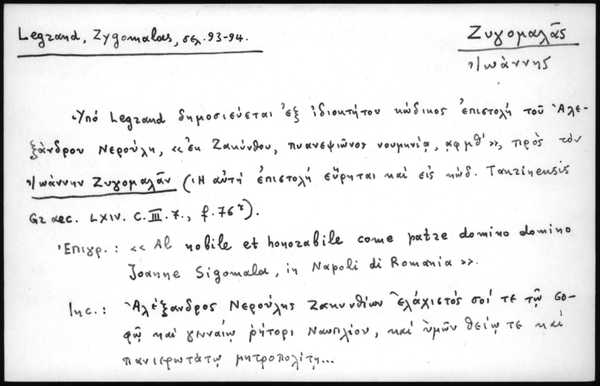 Legrand, Zygomalas, σελ. 93-94.
Ζυγομαλᾶς
Ἰωάννης
Ὑπὸ Legrand δημοσιεύεται ἐξ ἰδιοκτήτου κώδικος ἐπιστολὴ τοῦ Ἀλε-
ξάνδρου Νερούλη, «ἐκ Ζακύνθου, πυανεψιῶνος νουμηνίᾳ, αφμθʹ», πρὸς τὸν
Ἰωάννην Ζυγομαλᾶν (Ἡ αὐτὴ ἐπιστολὴ εὕρηται καὶ εἰς κώδ. Taurinensis
Graec. LXIV. C. III. 7., f. 76ʳ).
Ἐπιγρ.: «Al nobile et honorabile come patre domino domino
Joanne Sigomala, in Napoli di Romania».
Inc.: Ἀλέξανδρος Νερούλης Ζακυνθίων ἐλάχιστός σοί τε τῷ σο-
φῷ καὶ γενναίῳ ῥήτορι Ναυπλίου, καὶ ὑμῶν θείῳ τε καὶ
πανιερωτάτῳ μητροπολίτῃ...